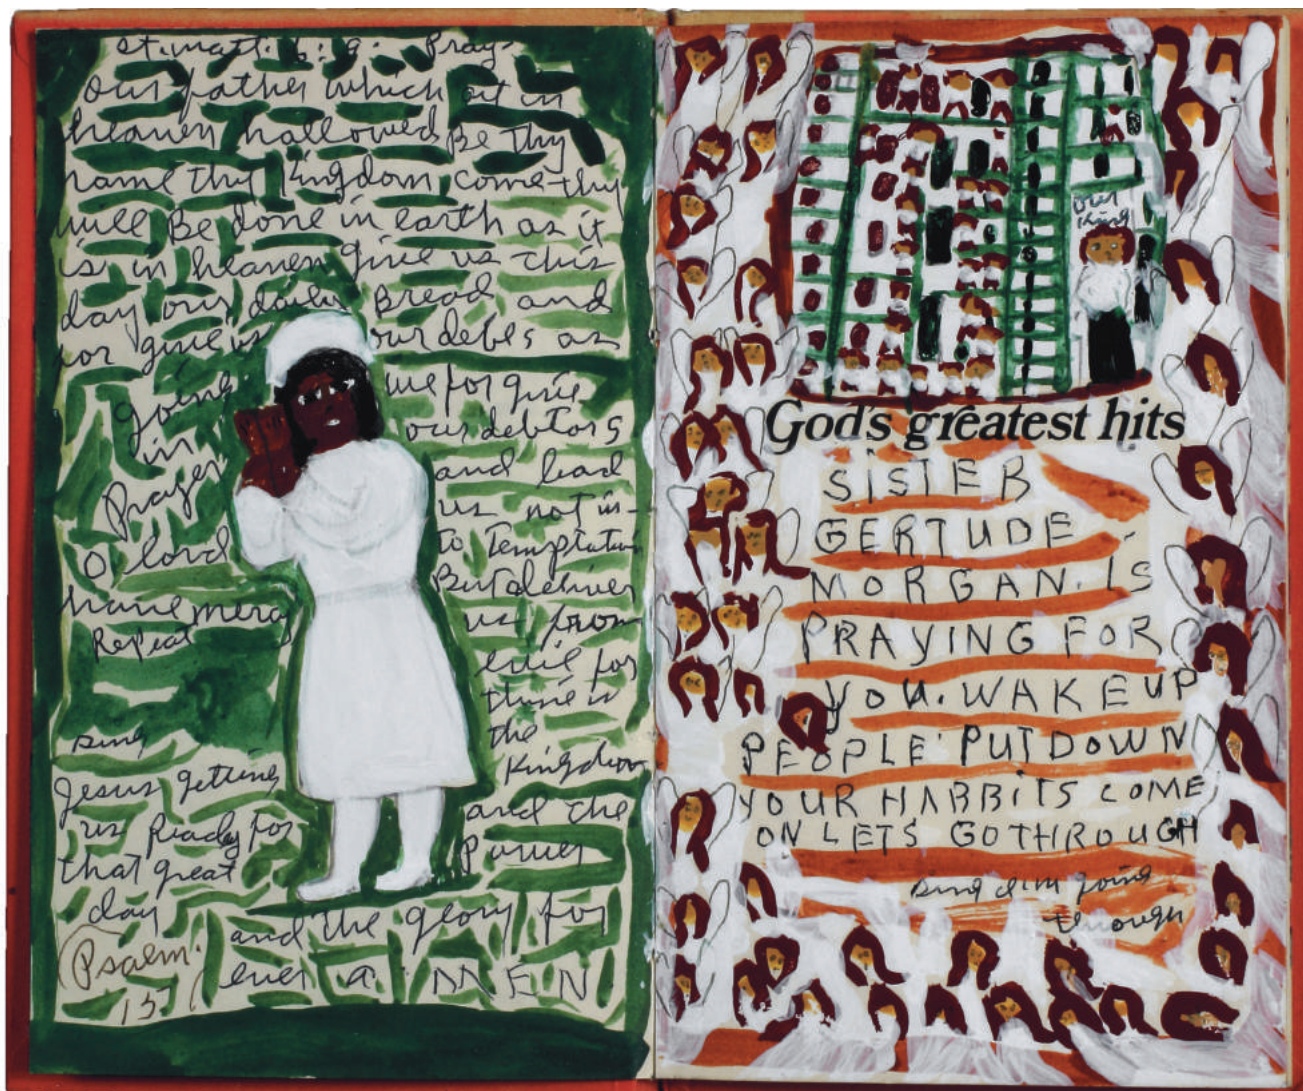 St. matt. 6: 9: Pray
our father which art in
heaven hallowed Be thy
name thy Kingdom come thy
will Be done in earth as it
is in heaven give us this
day our daily Bread and
for give us our debts as
we for give
our debtors
and lead
us not in-
to Temptation
But deliver
us from
evil for
thine is
the
Kingdom
and the
Power
and the glory for
ever a. MEN
going
in
Prayer
O lord
have mercy
Repeat
sing
Jesus getting
us Ready for
that great
day
Psalm.
137
our
King
God's greatest hits
SISTER
GERTUDE
MORGAN. IS
PRAYING FOR
YOU. WAKE UP
PEOPLE PUT DOWN
YOUR HABBITS COME
ON LETS GO THROUGH
sing I'm going
through